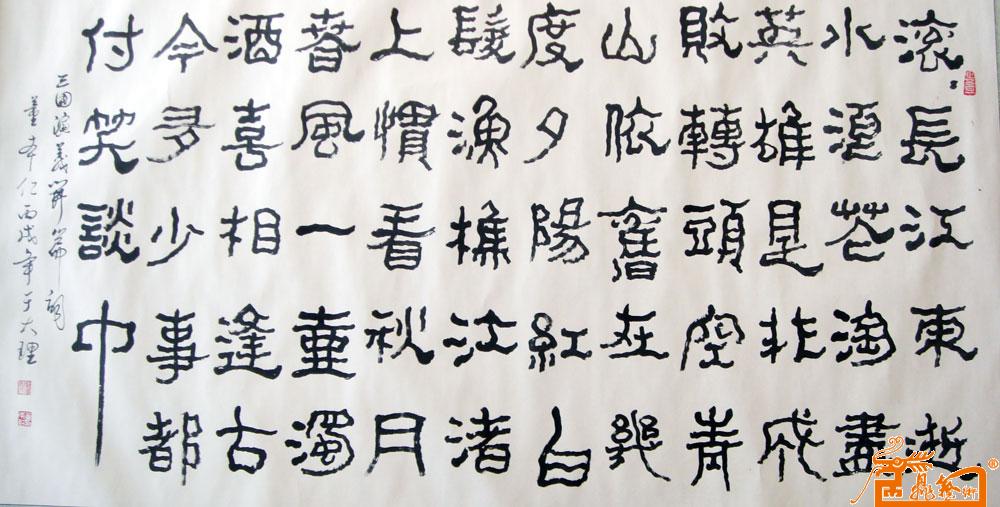 滚〻長江東逝
水浪花淘盡
英雄是非成
敗轉頭空青
山依舊在幾
度夕陽紅白
髮漁樵江渚
上慣看秋月
春風一壺濁
酒喜相逢古
今多少事都
付笑談中
三國演義開篇詞
董仁丙戌年于大理